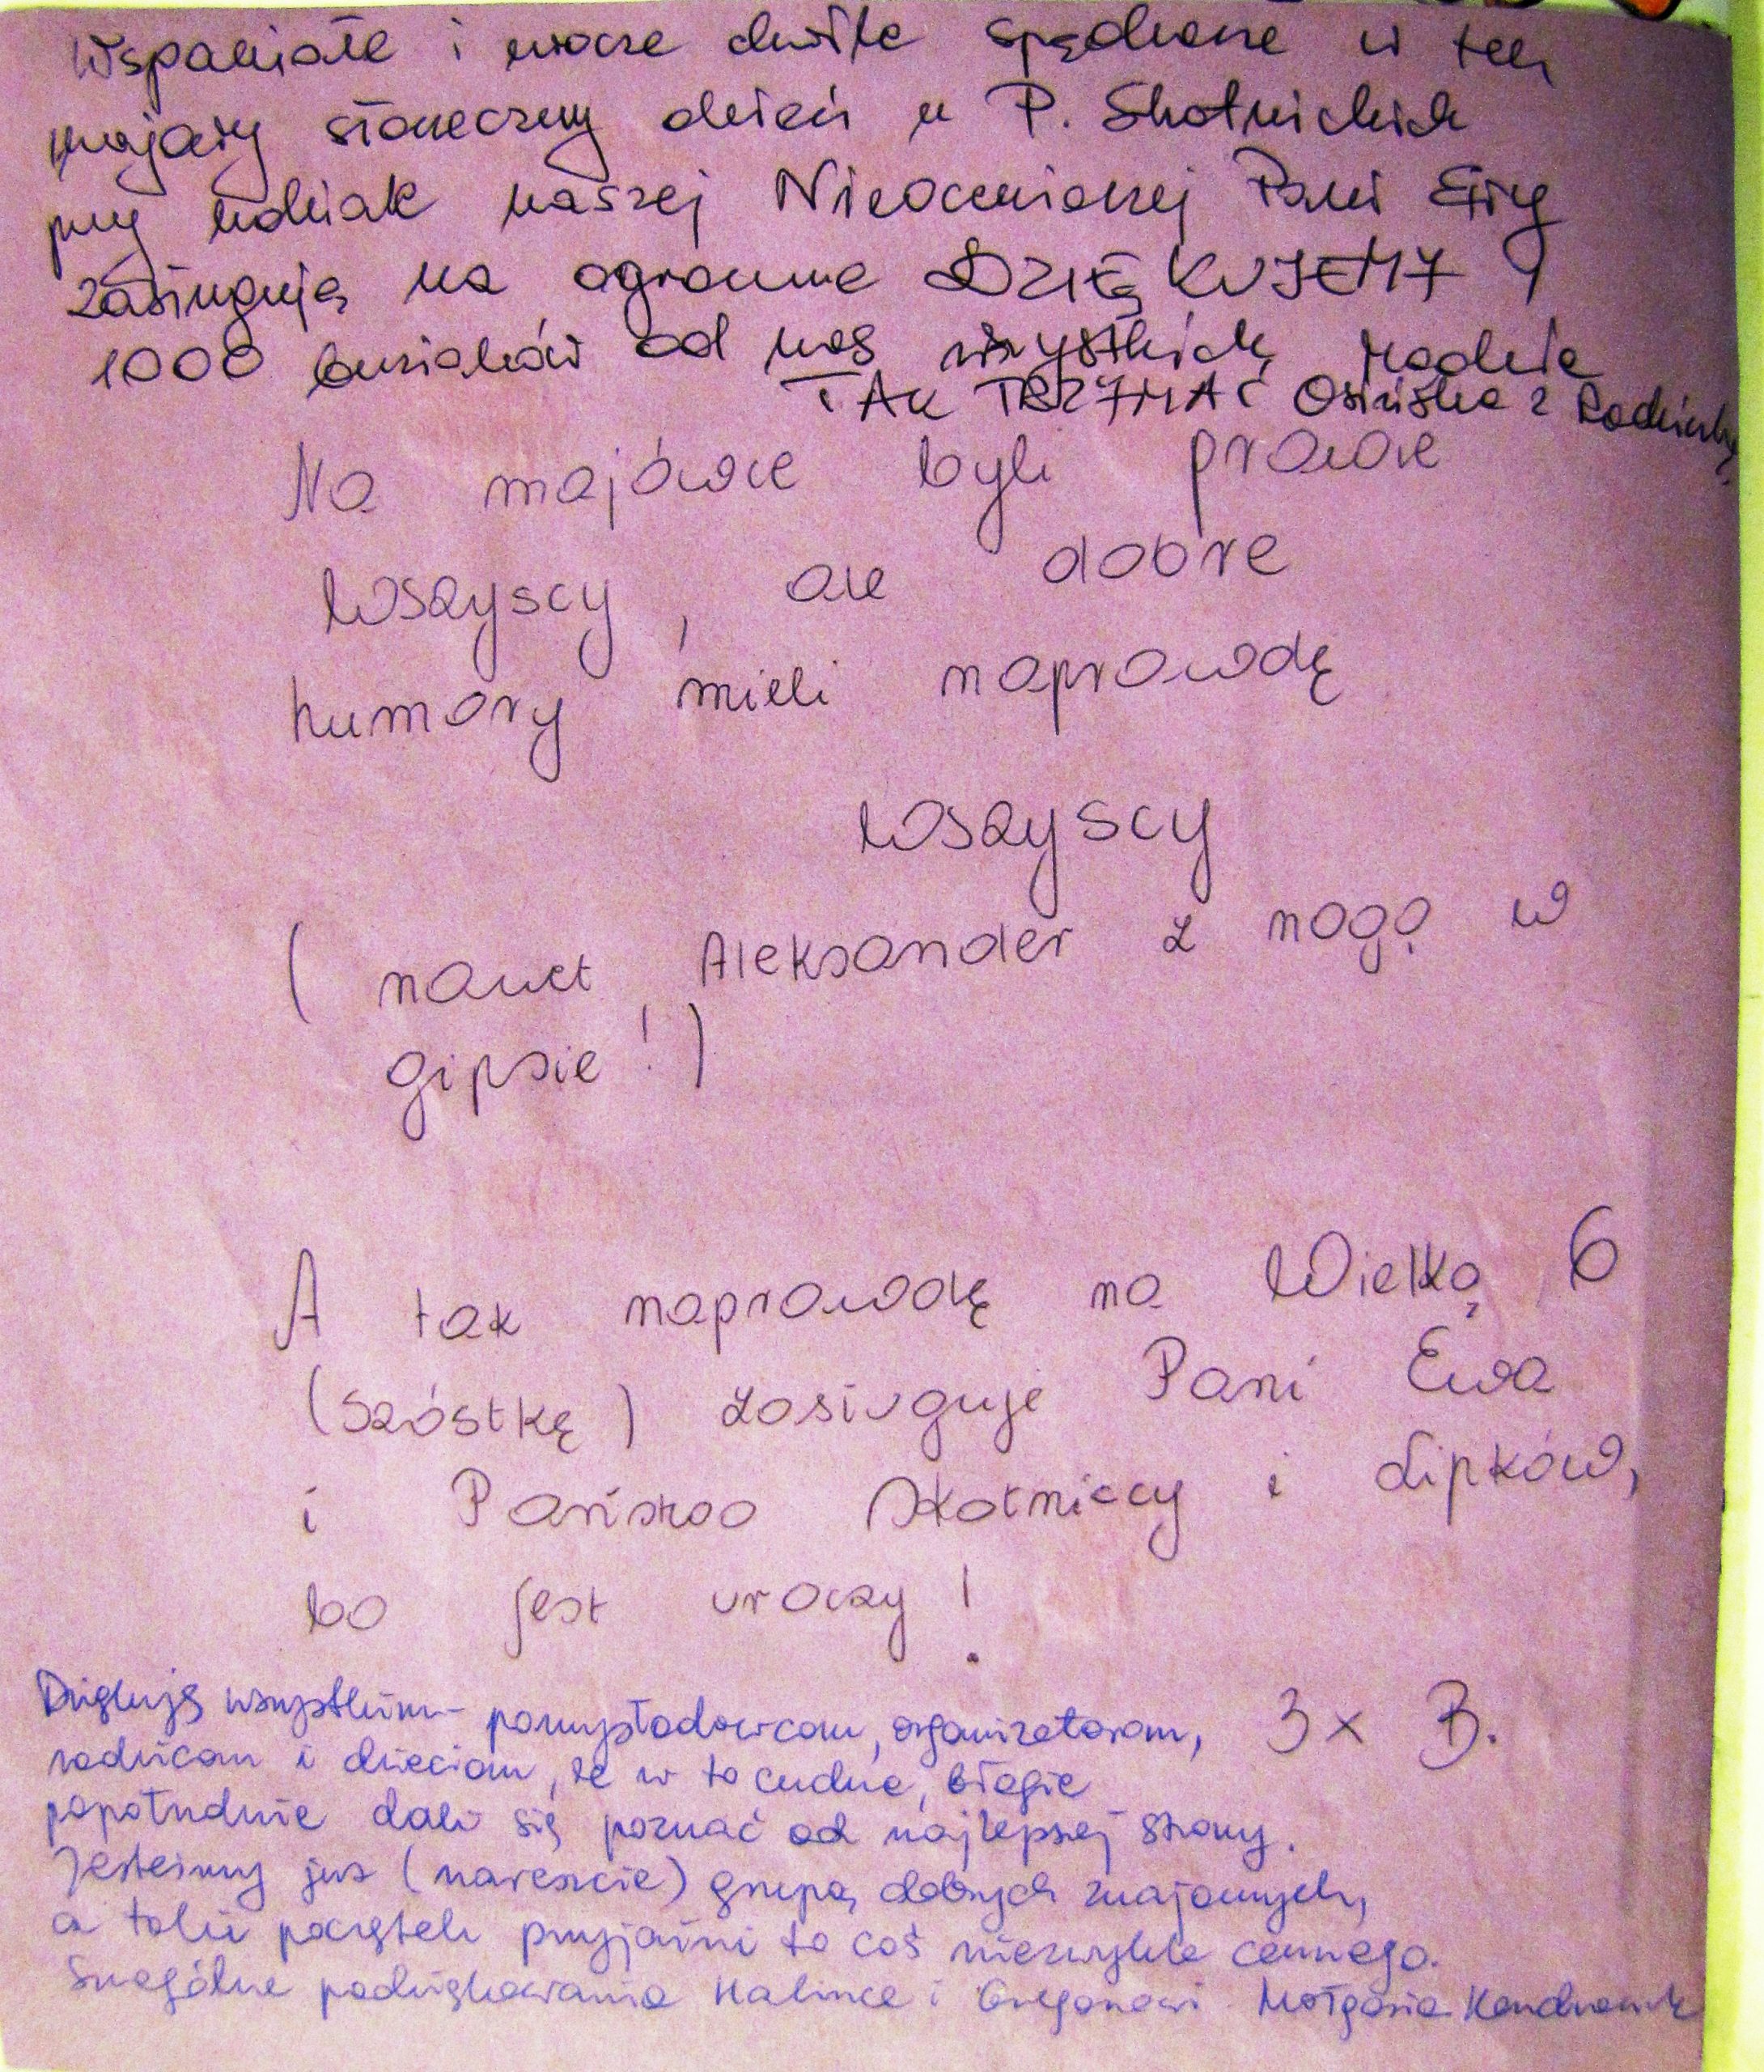 Wspaniałe i urocze chwile spędzone w ten
majowy słoneczny dzień u P. Skotnickich
przy udziale naszej Nieocenionej Pani Ewy
zasługują na ogromne DZIĘKUJEMY!
1000 buziaków od nas wszystkich
TAK TRZYMAĆ Osińska z Rodzinką
Na majówce byli prawie
wszyscy, ale dobre
humory mieli naprawdę
wszyscy
(nawet Aleksander z nogą w
gipsie!)
A tak naprawdę na Wielką 6
(szóstkę) zasługuje Pani Ewa
i Państwo Skotniccy i Lipków,
bo jest uroczy!
3x B.
Dziękuję wszystkim - pomysłodawcom, organizatorom,
rodzicom i dzieciom, że w to cudne, błogie
popołudnie dali się poznać od najlepszej strony.
Jesteśmy już (nareszcie) grupą dobrych znajomych,
a taki początek przyjaźni to coś niezwykle cennego.
Szczególne podziękowania Halince i Małgosia